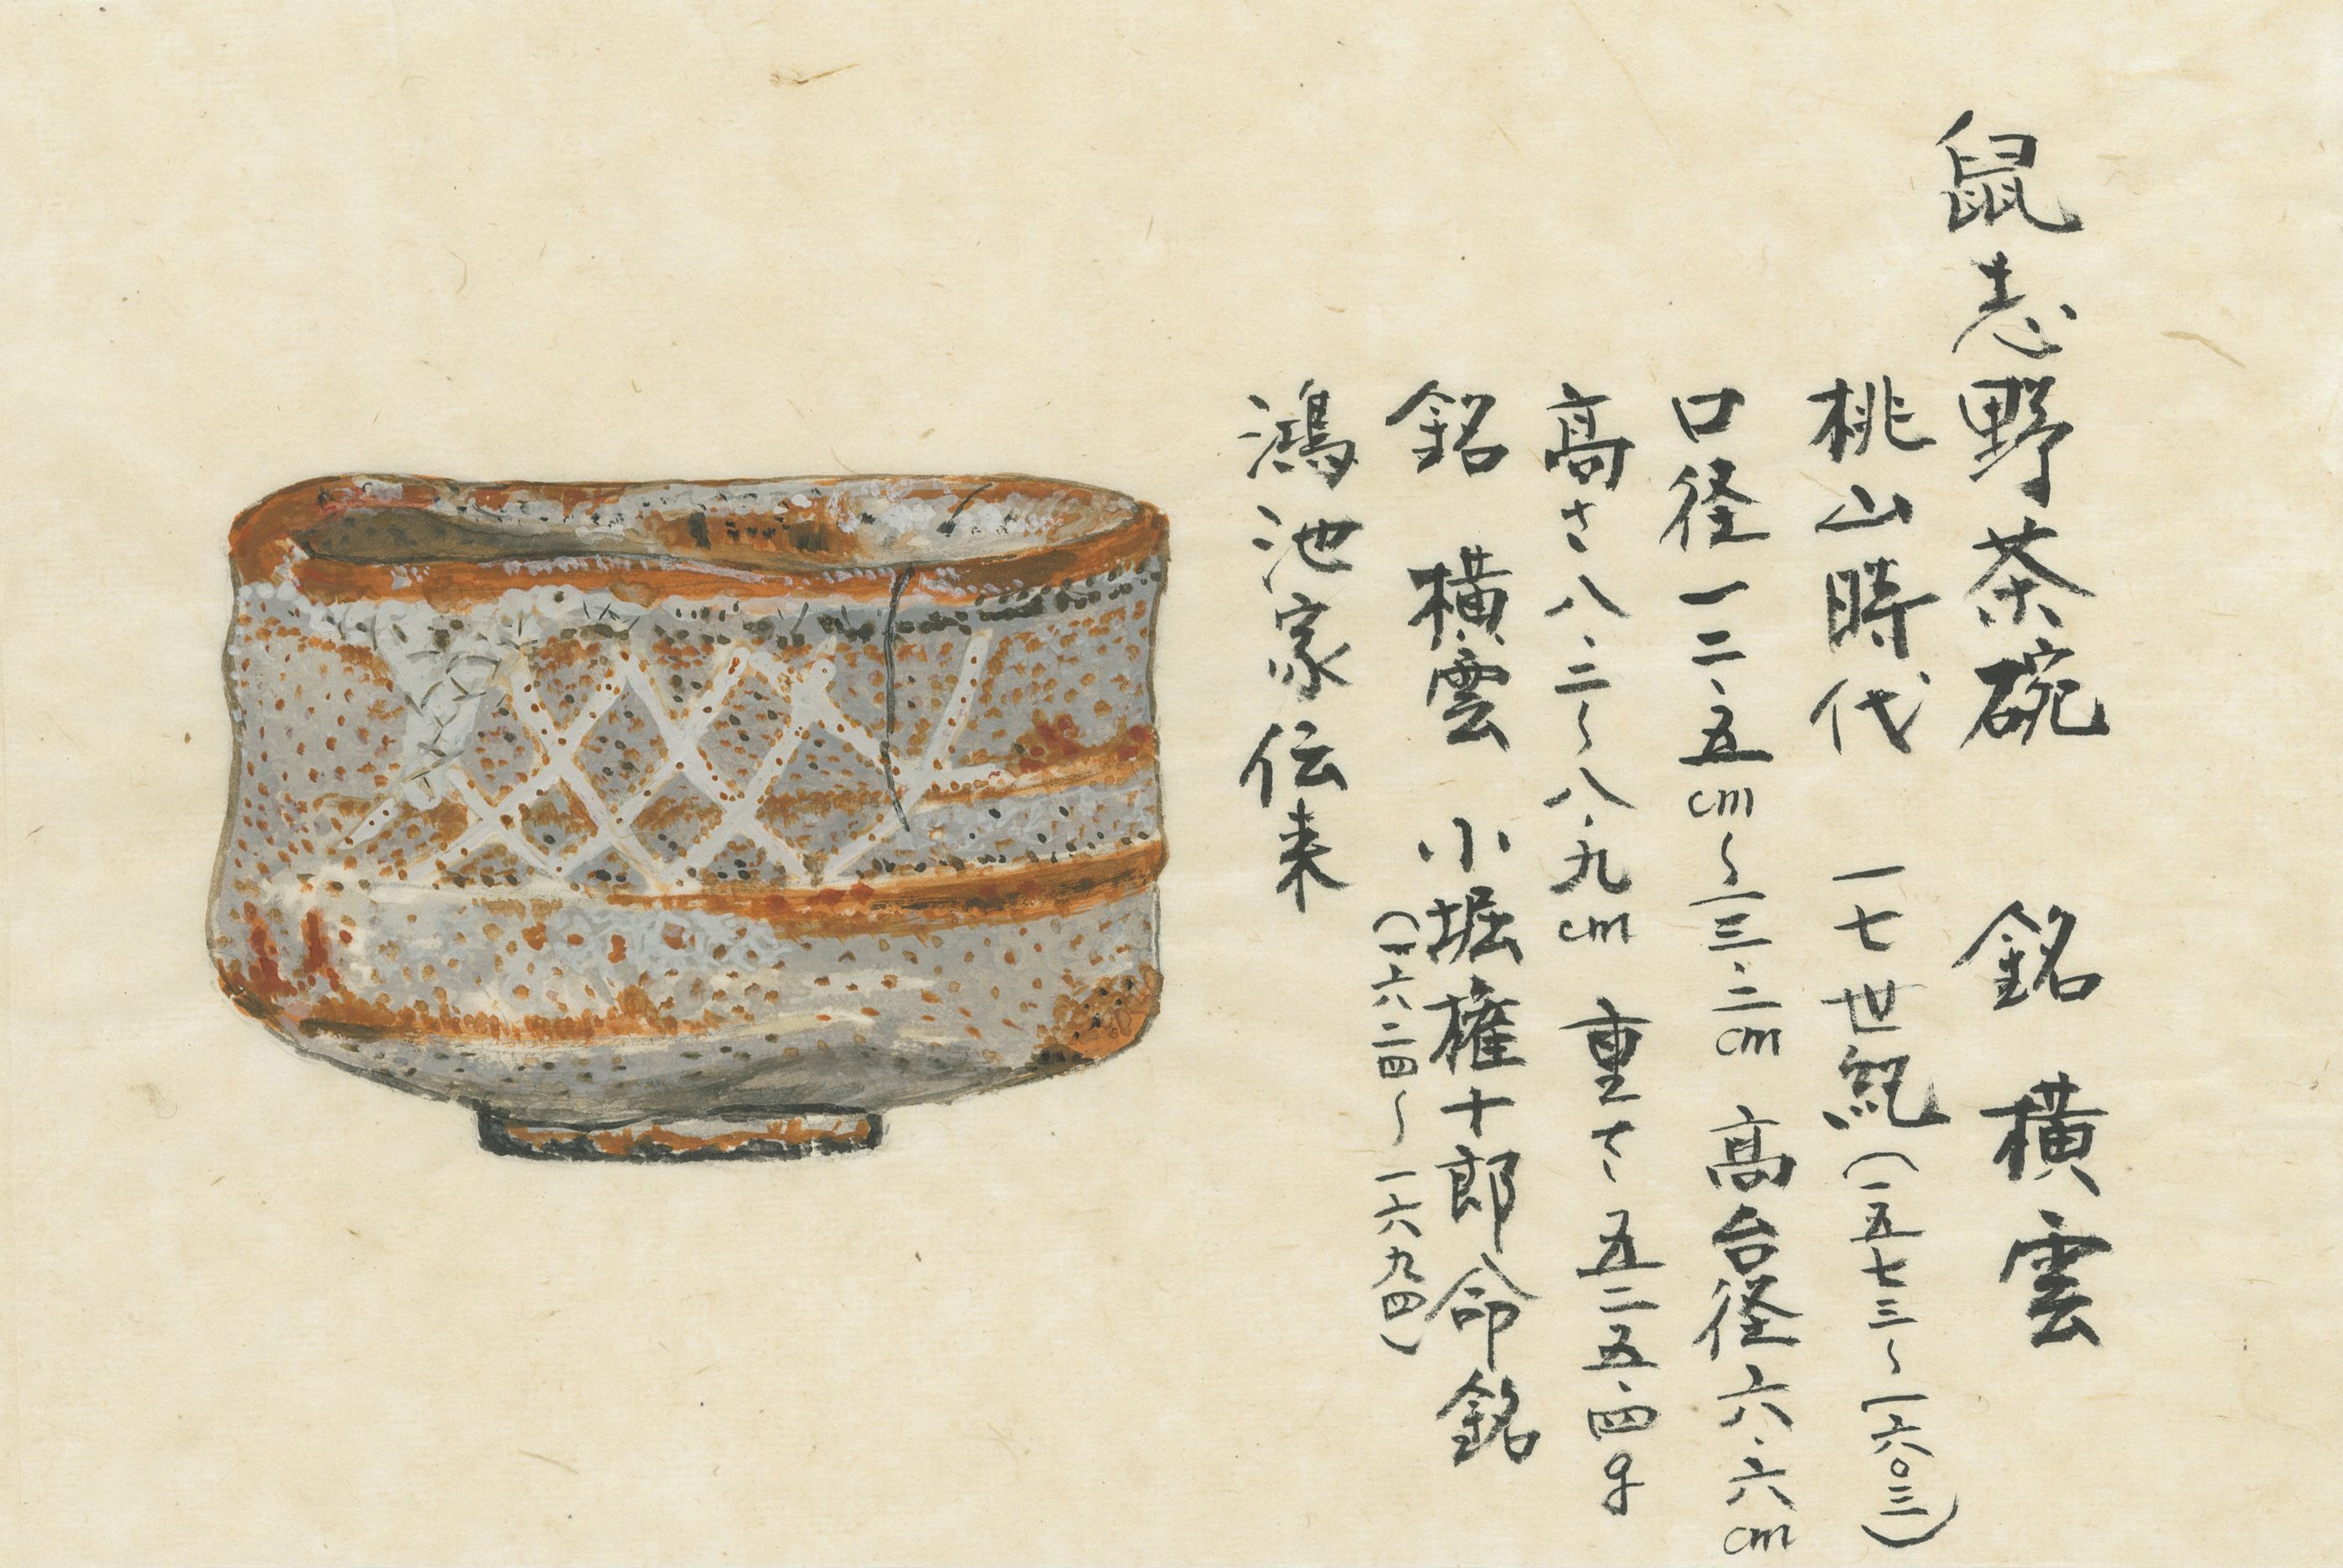 鼠志野茶碗 銘 横雲
桃山時代 一七世紀(一五七三〜一六〇三)
口径一二.五cm〜一三.二cm 高台径六.六cm
高さ八.二〜八.九cm 重さ五二五.四g
銘 横雲 小堀権十郎命銘
(一六二四〜一六九四)
鴻池家伝来